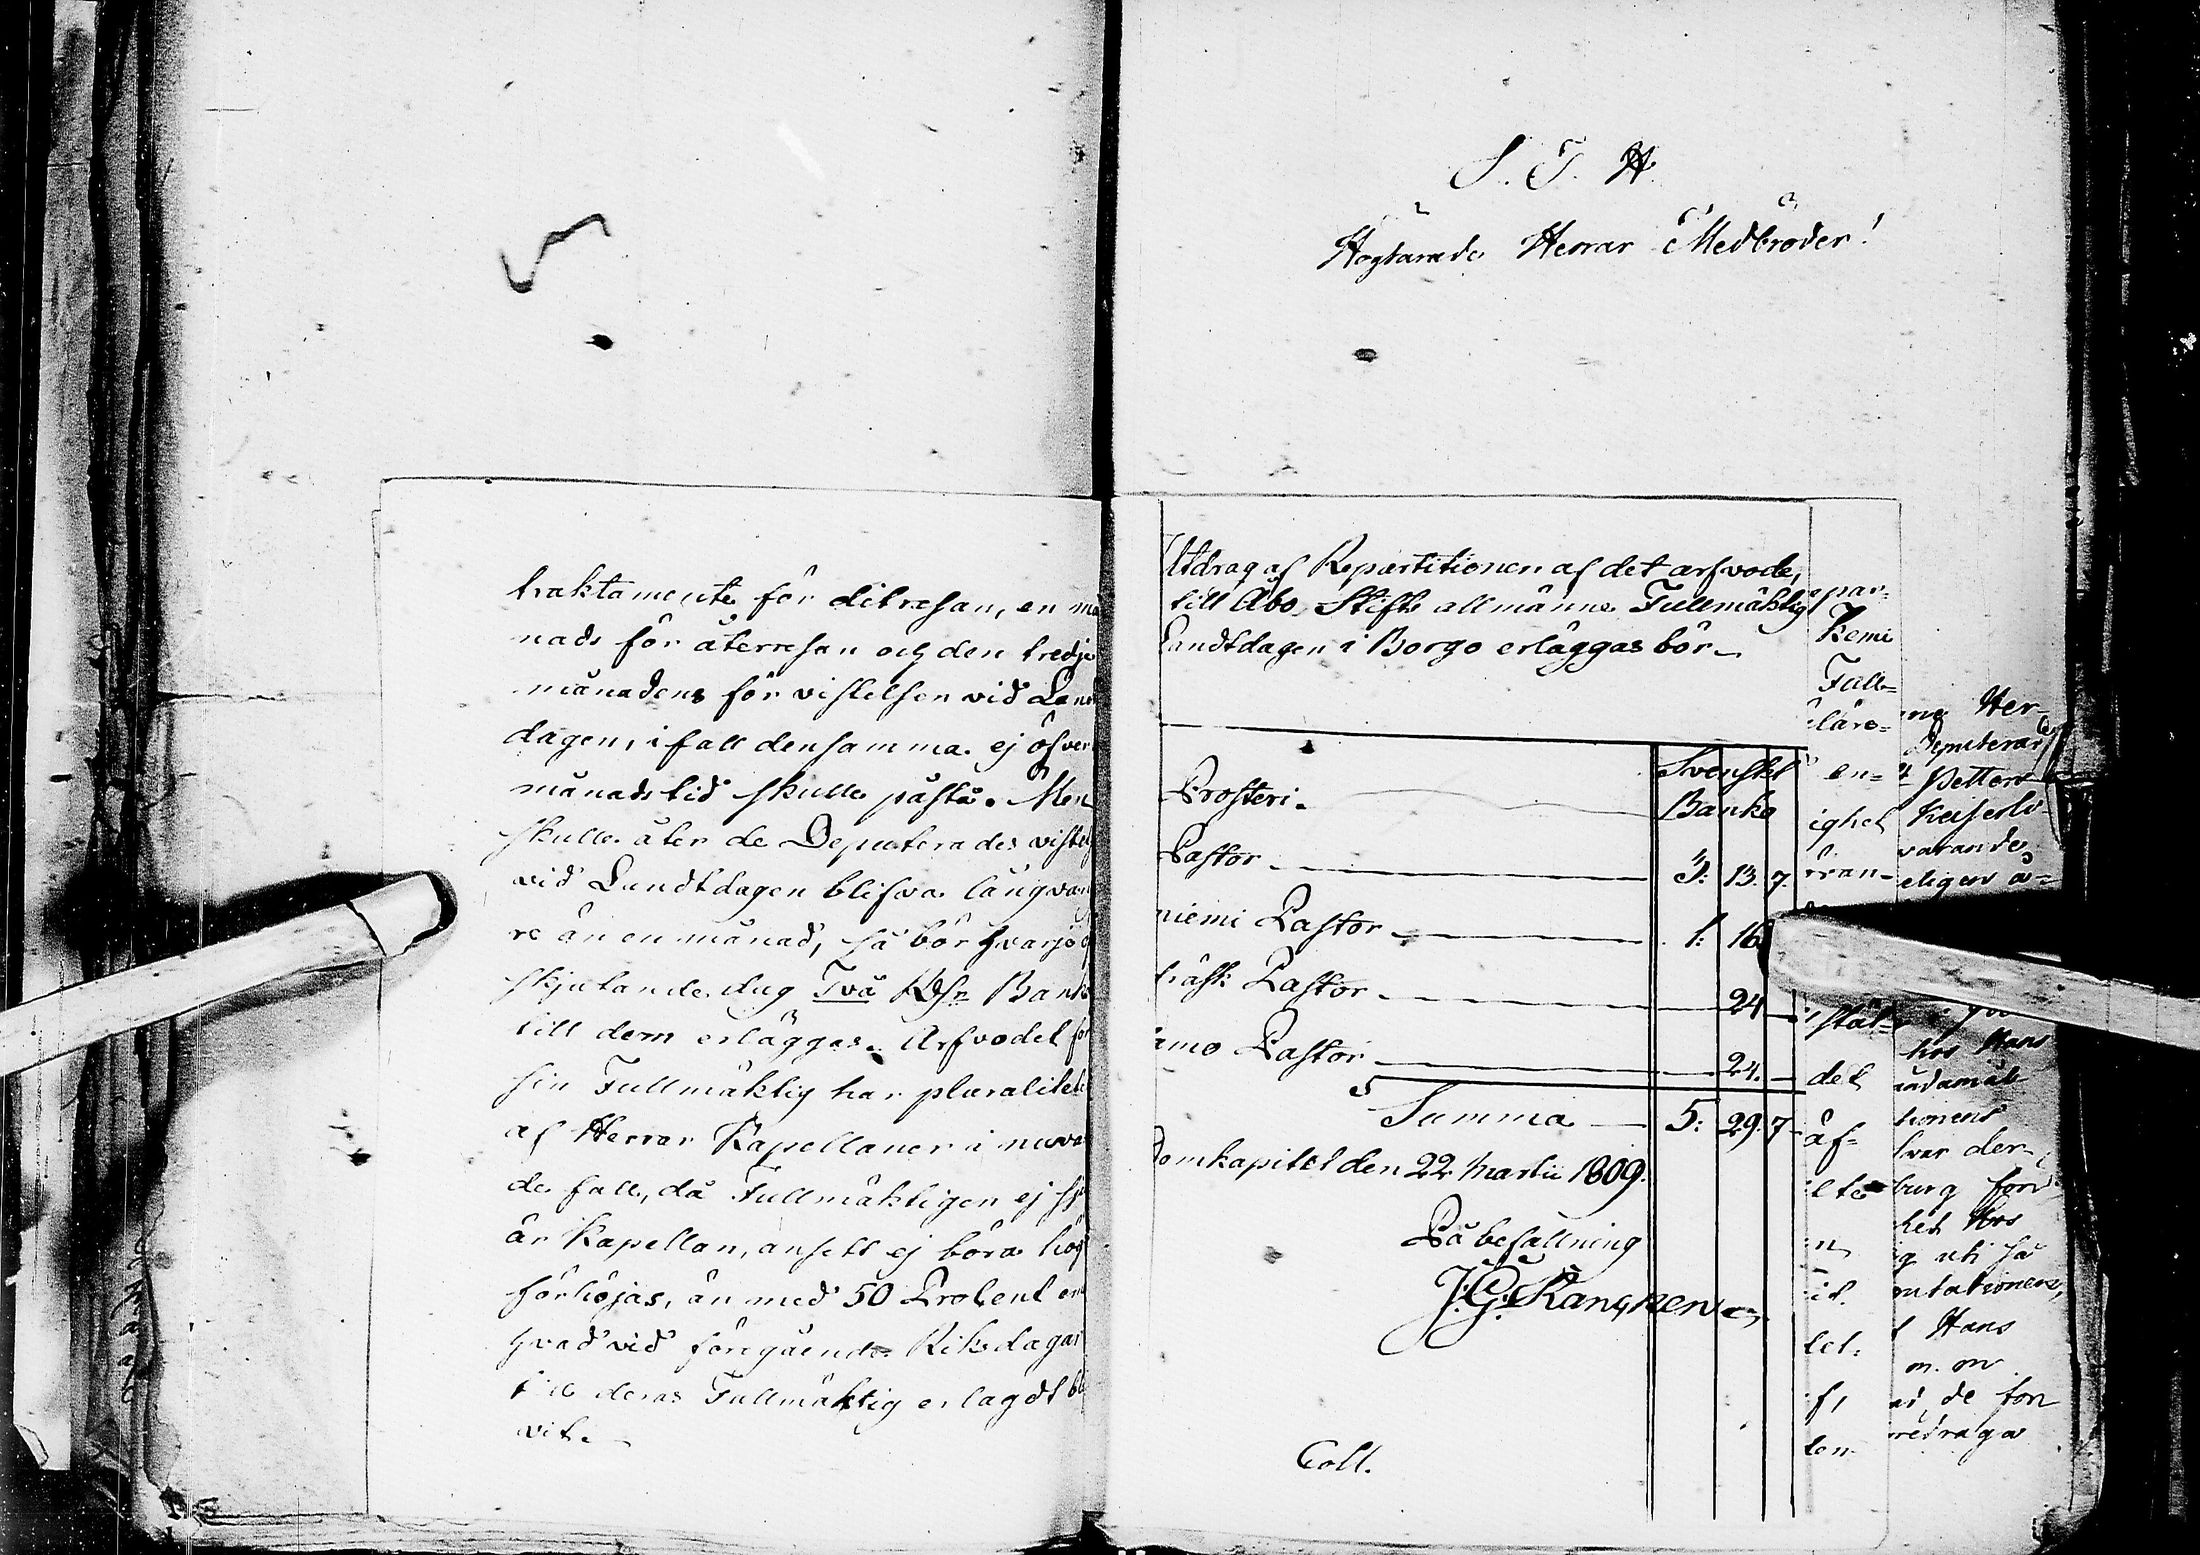 traktamente för ditresan, en må
nads för återresan och den tredje
månadens för vistelsen vid Land
dagen, i fall densamma ej öfver
månads tid skulle påstå. Men
skulle åter de Deputerades vistel
vid Landtdagen blifva långva
re än en månad, så bör hvarje öf
skjutande dag Två Rdr Banko
till dem erläggas. Arfvodet för
sin Fullmäktig har pluralitet
af Herrar Kapellaner i nuva
de fall, då Fullmäktigen ej sj
är Kapellan, ansett ej böra hög
förhöjas, än med 50 Procent
hvad vid föregående Riksdagar
till deras Fullmäktig erlagdt bl
vit.
S. T. H
Högtärade Herrar Medbröder!
Utdrag af Repartitionen af det arfvode,
till Åbo Stifts allmänna Fullmäktig
Landtdagen i Borgo erläggas bör
Prosteri.
Svenskt
Banko
Pastor 3: 13. 7.
niemi Pastor 1: 16
träsk Pastor 24
amo Pastor 24.
Summa 5: 29. 7
Domkapitel den 22 Martii 1809.
På befallning
J. G. Rancken
Coll.
par-
Kemi
Full=
läro=
en=
ighet
rran-
stäl=
det
åf=
lte
n
id.
let.
f,
len
Her-
Deputerar
Petters
Keiserli
varande
eligen
hos Hans
ändamål
tionens
var der-
burg för
het Hos
g uti så
mtationens,
Hans
m. m
ad, de för
redraga